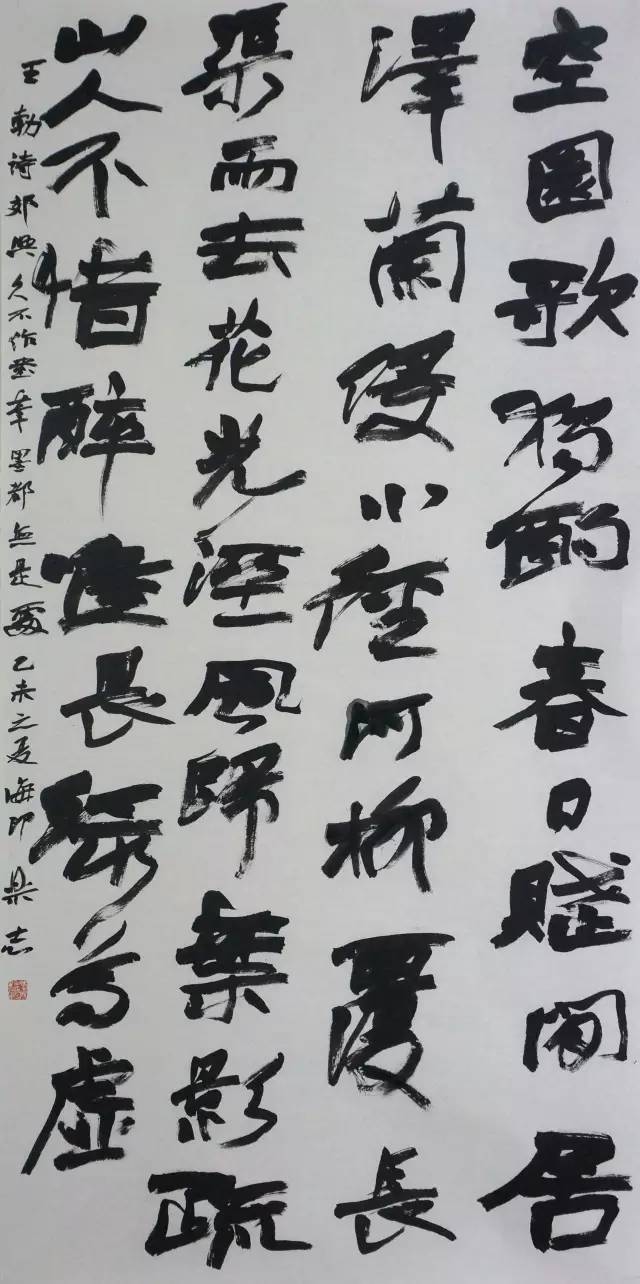 空園歌獨酌春日賦閒居
澤蘭侵小徑河柳覆長
渠雨去花光溼風歸葉影疏
山人不惜醉唯畏綠尊虛
王勃诗郊興久不作書筆墨都无是處乙未之夏海印志